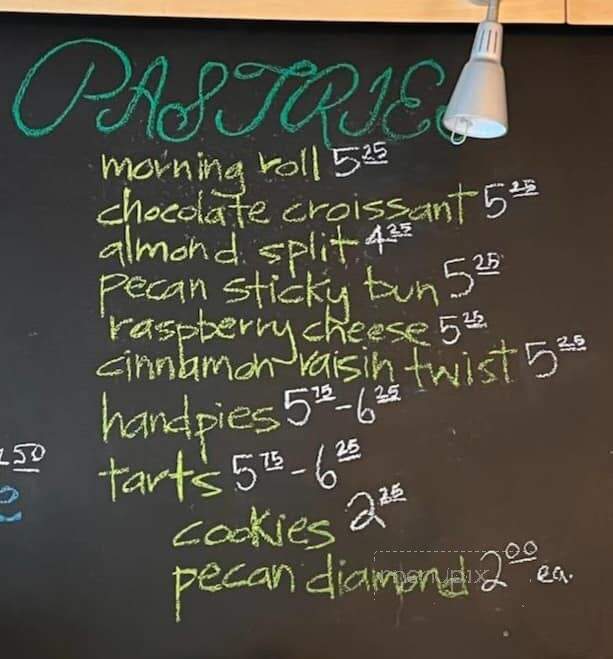 PASTRIES
morning roll 5.25
chocolate croissant 5.25
almond split 4.25
pecan sticky bun 5.25
raspberry cheese 5.25
cinnamon raisin twist 5.25
handpies 5.75-6.25
tarts 5.75-6.25
cookies 2.25
pecan diamond 2.00 ea.
menupix
50
e